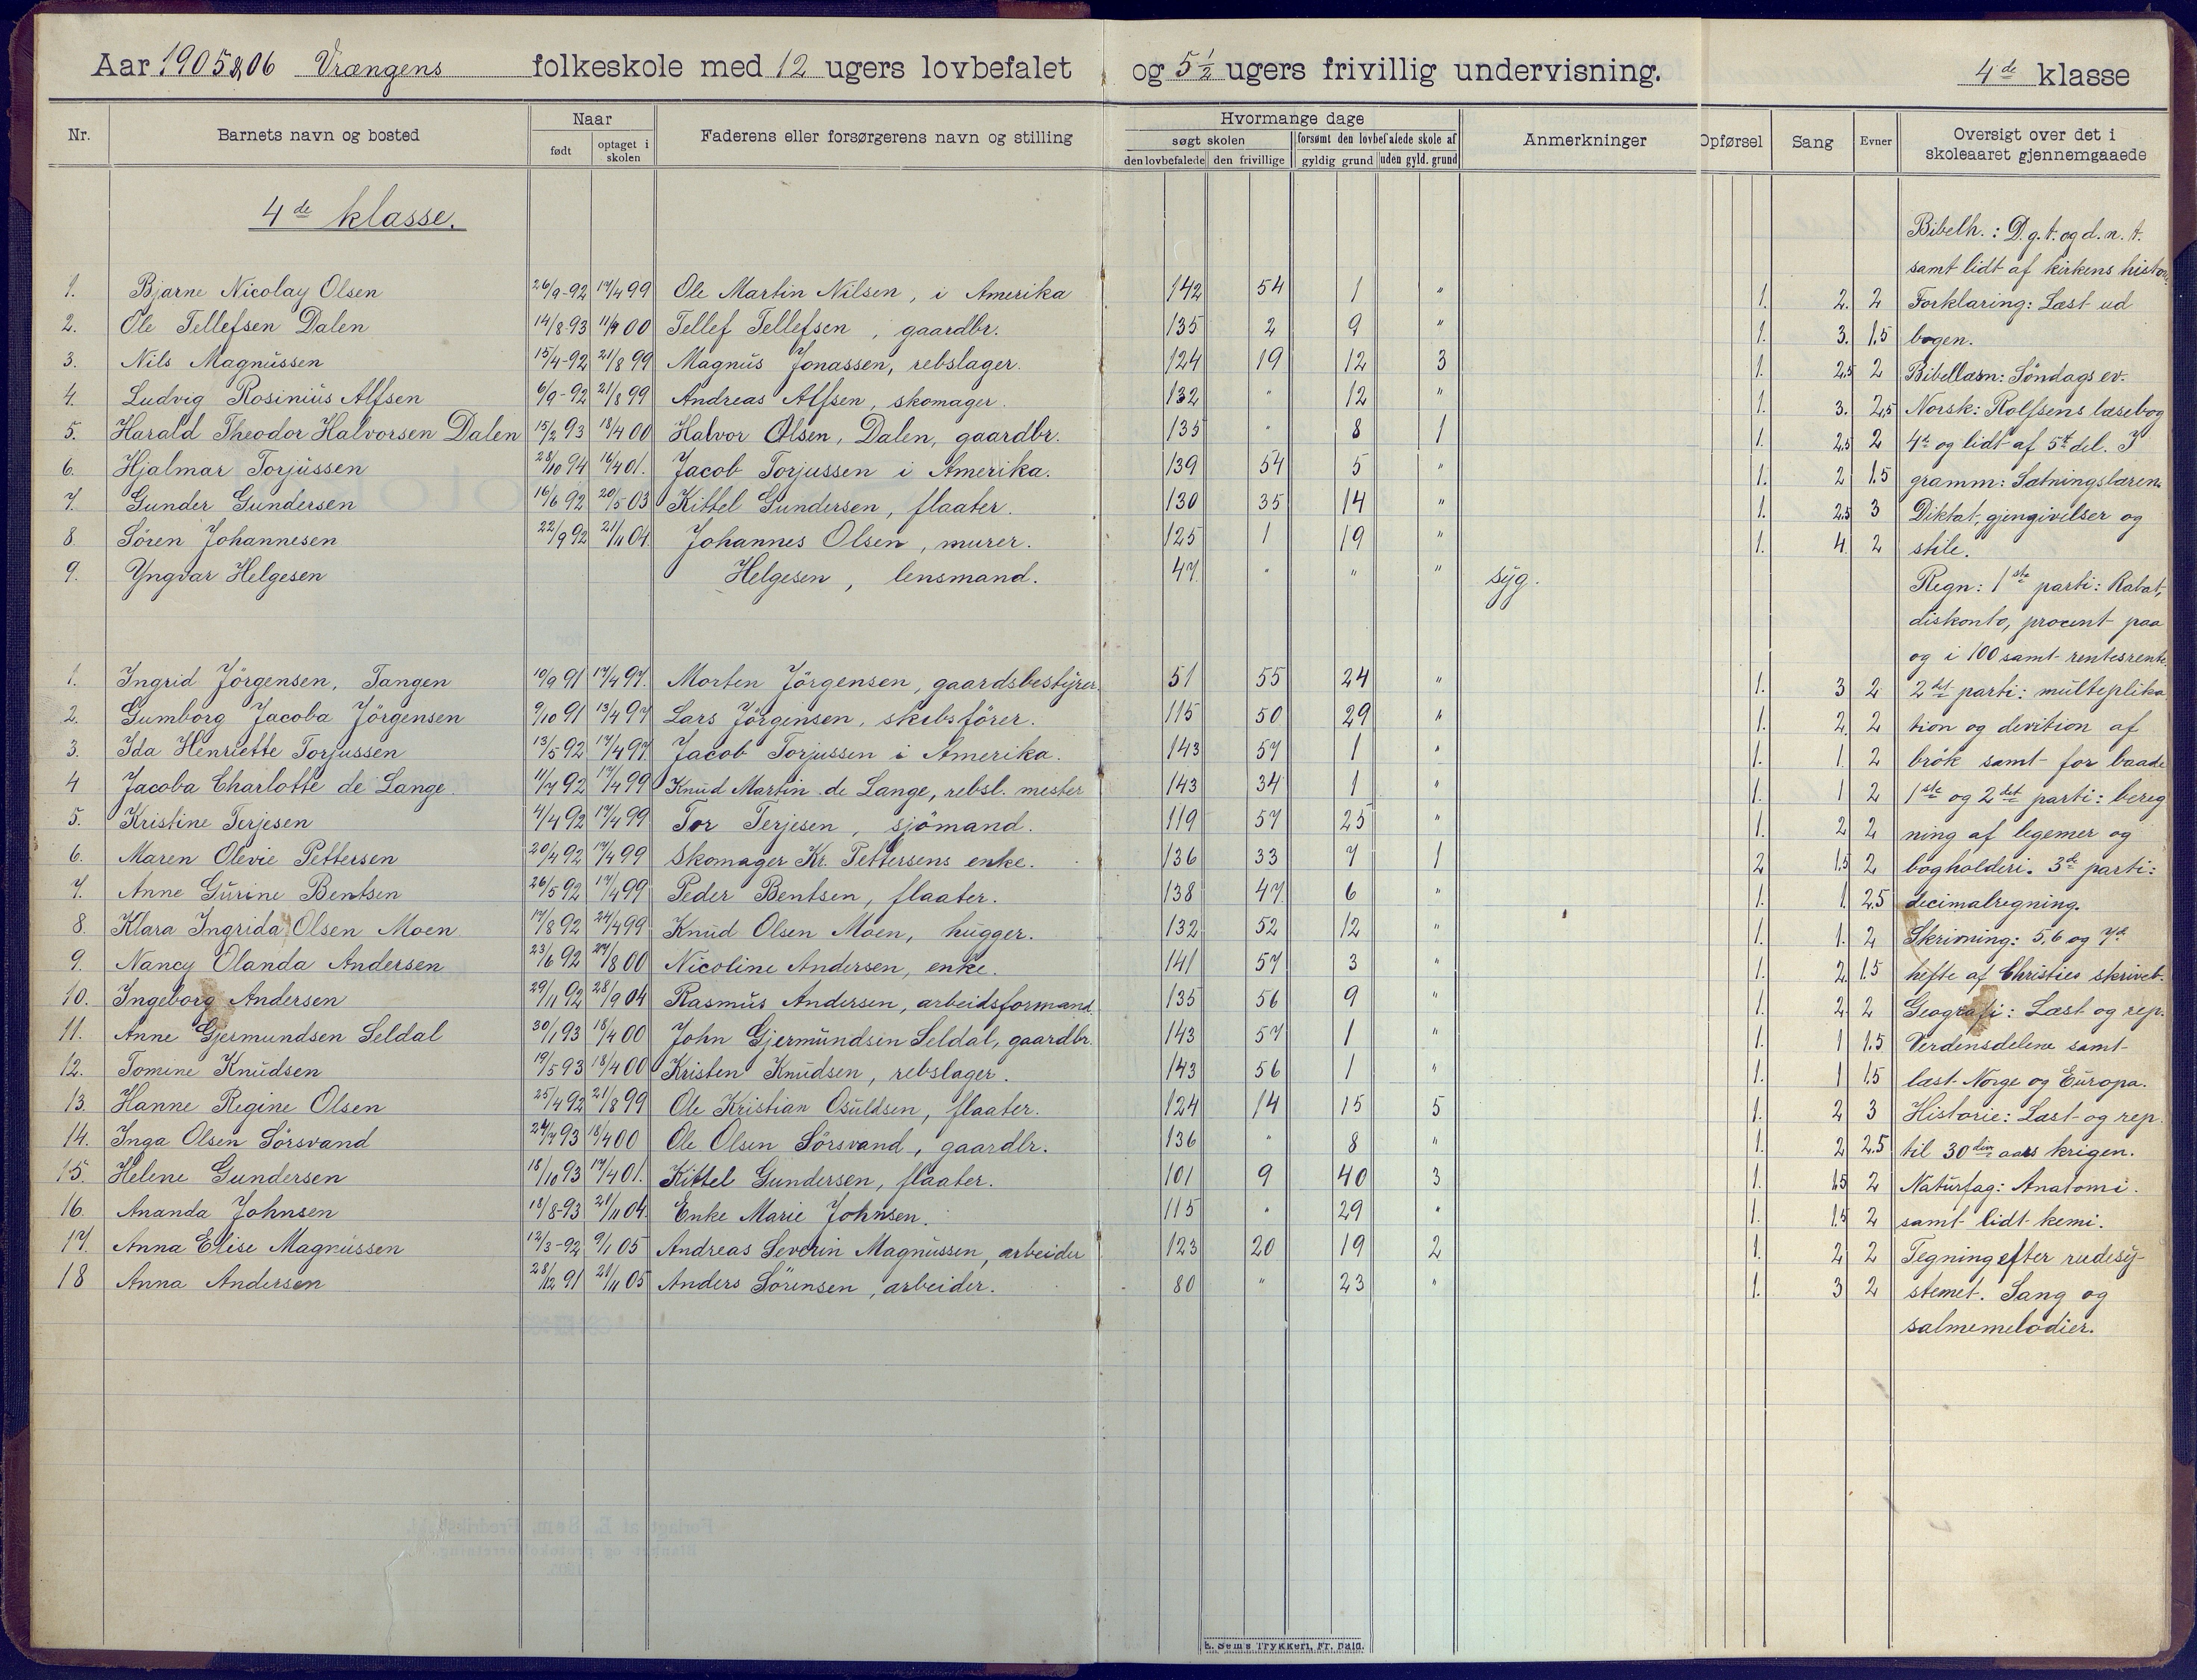 Aar 1905 & 06 Vrængens folkeskole med 12 ugers lovbefalet og 5 1/2 ugers frivillig undervisning. 4de klasse
Nr. Barnets navn og bosted Naar Faderens eller forsørgerens navn og stilling Hvormange dage Anmerkninger Opførsel Sang Evner Oversigt over det i skoleaaret gjennemgaaede
født optaget i skolen søgt skolen forsømt den lovbefalede skole af
den lovbefalede den frivillige gyldig grund uden gyld. grund
4de klasse.
Bibelh.: D. g. t. og d. n. t.
samt lidt af kirkens histor.
1. Bjarne Nicolay Olsen 26/9-92 17/4 99 Ole Martin Nilsen, i Amerika 142 54 1 " 1. 2. 2 Forklaring: Læst ud
2. Ole Tellefsen Dalen 14/8 93 11/9 00 Tellef Tellefsen, gaardbr. 135 2 9 " 1. 3. 1.5 bogen.
3. Nils Magnussen 15/4-92 21/8 99 Magnus Jonassen, rebslager. 124 19 12 3 1. 2.5 2 Bibellæsn: Söndags ev.
4. Ludvig Rosinius Alfsen 6/9-92 21/8 99 Andreas Alfsen, skomager. 132 " 12 " 1. 3. 2.5 Norsk: Rolfsens læsebog
5. Harald Theodor Halvorsen Dalen 15/2 93 18/4 00 Halvor Olsen, Dalen, gaardbr. 135 " 8 1 1. 2.5 2 4de og lidt af 5te del. I
6. Hjalmar Torjussen 28/10 94 16/4 01. Jacob Torjussen i Amerika. 139 54 5 " 1. 2 1.5 gramm: Sætningslæren.
7. Gunder Gundersen 16/6 92 20/5 03 Kittel Gundersen, flaater. 130 35 14 " 1. 2.5 3 Diktat, gjengivelser og
8. Sören Johannesen 22/9 92 21/11 04. Johannes Olsen, murer. 125 1 19 " 1. 4. 2 stile.
9. Yngvar Helgesen Helgesen, lensmand. 47 " " " syg.
Regn: 1ste parti: Rabat,
diskonto, procent paa
og i 100 samt rentesrente
1. Ingrid Jörgensen, Tangen 10/9 91 17/4 97. Morten Jörgensen, gaardsbestyrer. 51 55 24 " 1. 3 2 2det parti: multeplika
2. Gumborg Jacoba Jörgensen 9/10 91 13/4 97 Lars Jörgensen, skibsförer. 115 50 29 " 1. 2. 2 tion og devition af
3. Ida Henriette Torjussen 13/5 92 17/4 99. Jacob Torjussen i Amerika. 143 57 1 " 1. 1. 2 brök samt for baade
4 Jacoba Charlotte de Lange. 11/7 92 17/4 99 Knud Martin de Lange, rebsl. mester 143 34 1 " 1. 1 2 1ste og 2det parti: bereg
5. Kristine Terjesen 4/4 92 17/4 99 Tor Terjesen, sjömand. 119 57 25 " 1. 2 2 ning af legemer og
6. Maren Olevie Pettersen 20/4 92 17/4 99 Skomager Kr. Pettersens enke. 136 33 7 1 2 1.5 2 bogholderi. 3de parti:
7. Anne Gurine Bentsen 26/5 92 17/4 99 Peder Bentsen, flaater. 138 47 6 " 1. 1. 2.5 decimalregning.
8. Klara Ingrida Olsen Moen 17/8 92 24/4 99 Knud Olsen Moen, hugger. 132 52 12 " 1. 1. 2 Skrivning: 5, 6 og 7de
9. Nancy Olanda Andersen 23/6 92 27/8 00 Nicoline Andersen, enke. 141 57 3 " 1. 2. 1.5 hefte af Christies skriveb.
10. Ingeborg Andersen 29/11 92 28/9 04 Rasmus Andersen, arbeidsformand. 135 56 9 " 1. 2 2 Geografi: Læst og rep.
11. Anne Gjermundsen Seldal 30/1 93 18/4 00 John Gjermundsen Seldal, gaardbr. 143 57 1 " 1. 1 1.5 Verdensdelene samt
12. Tomine Knudsen 19/5 93 18/4 00 Kristen Knudsen, rebslager. 143 56 1 " 1. 1 1.5 læst Norge og Europa.
13. Hanne Regine Olsen 25/4 92 21/8 99 Ole Kristian Osuldsen, flaater. 124 14 15 5 1. 2 3 Historie: Læst og rep.
14. Inga Olsen Sörsvand 24/7 93 18/4 00 Ole Olsen Sörsvand, gaardbr. 136 " 8 " 1. 2 2.5 til 30 aars krigen.
15. Helene Gundersen 18/10 93 17/4 01. Kittel Gundersen, flaater. 101 9 40 3 1. 1.5 2 Naturfag: Anatomi.
16. Ananda Johnsen 18/8-93 21/11 04. Enke Marie Johnsen. 115 " 29 " 1. 1.5 2 samt lidt kemi.
17. Anna Elise Magnussen 12/3-92 9/1 05 Andreas Severin Magnussen, arbeider 123 20 19 2 1. 2 2 Tegning efter rudesy-
18 Anna Andersen 28/12 91 21/11 05 Anders Sörensen, arbeider. 80 " 23 " 1. 3 2 stemet. Sang og
salmemelodier.
E. Sems Trykkeri, Fr. hald.